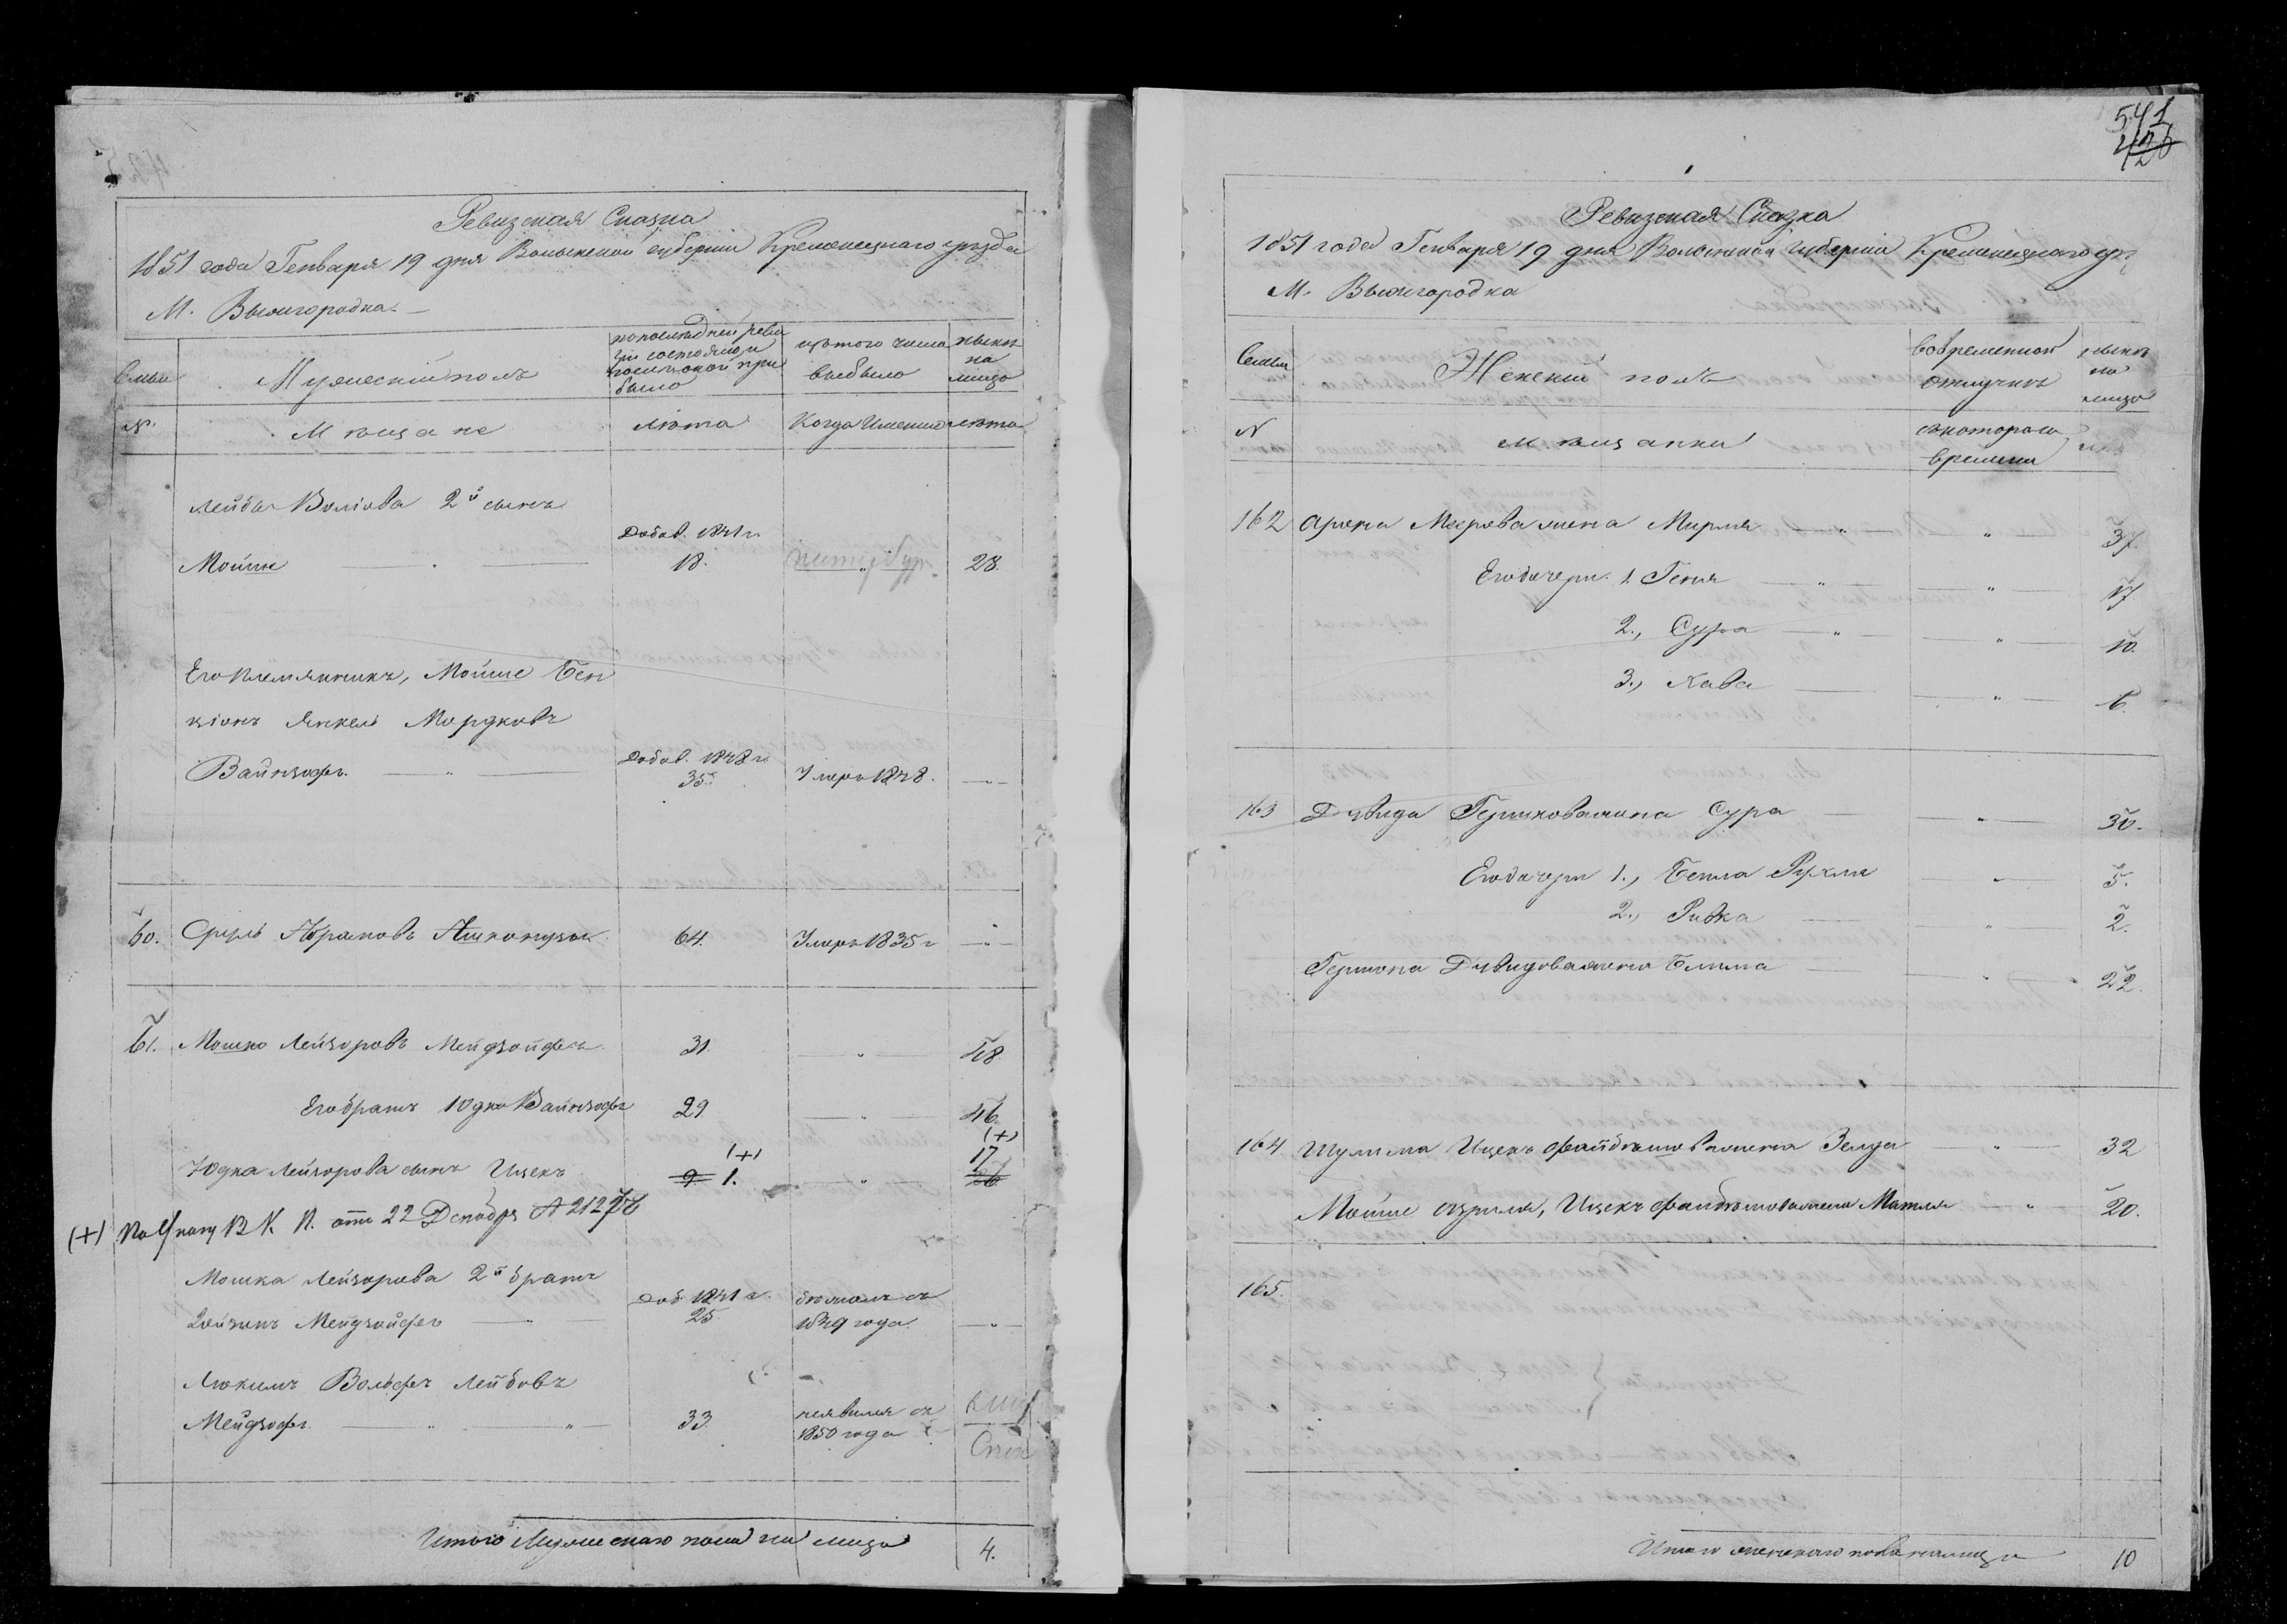 Ревизская Сказка
1851 года Генваря 19 дня Волынской губернии Кременецкаго уезда
М. Вышгородка
Семьи
Мужеский полъ
по последней реви
зіи состояло и
после оной при
было
изъ того числа
выбыло
ныне
на
лицо
№.
Мещане
Лѣта
Когда Именно
лѣта
Лейбы Волјова 2й сынъ
Мойше
Добав. 1841 г.
18.
28.
Его племянникъ, Мойше Бен
ціонъ Янкель Мордковъ
Вайнзофъ.
Добав. 1848 г.
35.
Умеръ 1848.
60.
Сруль Абрамовъ
64.
Умеръ 1835 г
61.
Мошко Лейзоровъ Мейдзойфъ
31.
48
Его братъ Юдко Вайнзофъ
29
46.
(+)
(+)
17
Юдка Лейзорова сынъ Ицекъ
9 1.
26
(+) По Указу В К П. отъ 22 Декабря № 21278
Мошка Лейзорова 2й братъ
Мейдзойфъ
Доб. 1841 г.
25
въ бегахъ съ
1849 года.
Вольфъ Лейбовъ
Мейдзофъ.
33.
неявился съ
1850 года
Итого Мужескаго пола на лицо
4.
541
426
Ревизская Сказка
1851 года Генваря 19 дня Волынской губерніи Кременецкаго уез
М. Вышгородка
Семьи
Женскій полъ
во временной
отлучке
ныне
на
лицо
N
мещанки
съ котораго
времени
162
Арона Меерова жена Мирля
37.
Его дочери. 1. Геня
17
2., Сура
10.
3., Хава
6.
163
Дувида Гершкова жена Сура
30.
Его дочери 1., Бейла Рухля
5.
2., Ривка
2.
Гершона Дувидова жена Блима
22.
164
Шулима Ицекъ Файбышова жена Зелда
32
Мойше Азриля, Ицекъ Файбышова жена Матля
20.
165.
Итого женскаго пола налицо
10